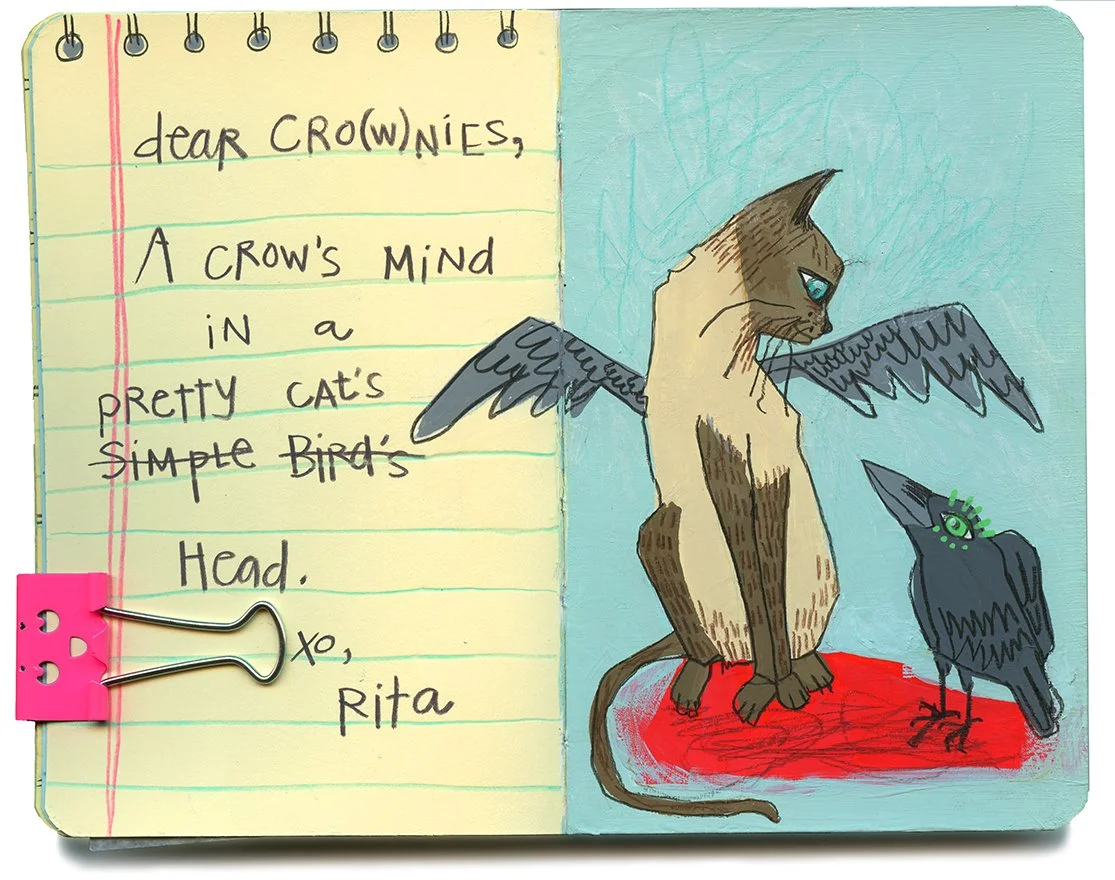 dear CRO(W)NIES,
A CROW'S MiNd
iN a
pRetty CAt's
SiMple BiRd's
Head.
xo,
Rita